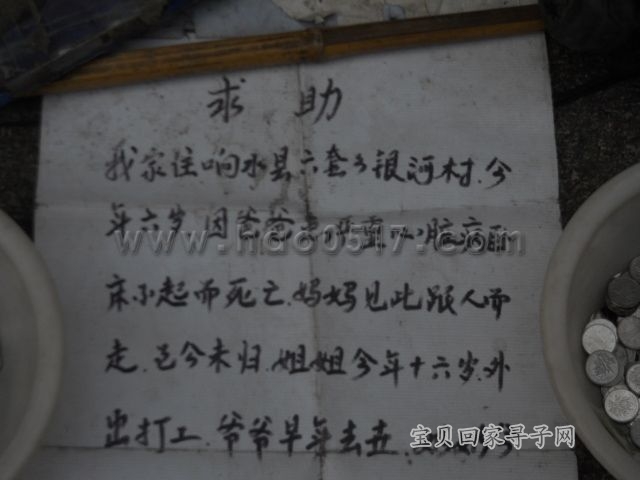 求 助
我家住响水县六套乡银河村.今
年六岁.因爸爸患严重心脏病卧
床不起而死亡.妈妈见此跟人而
走.至今未归.姐姐今年十六岁.外
出打工.爷爷早年去世.
www.hao0517.com
宝贝回家寻子网